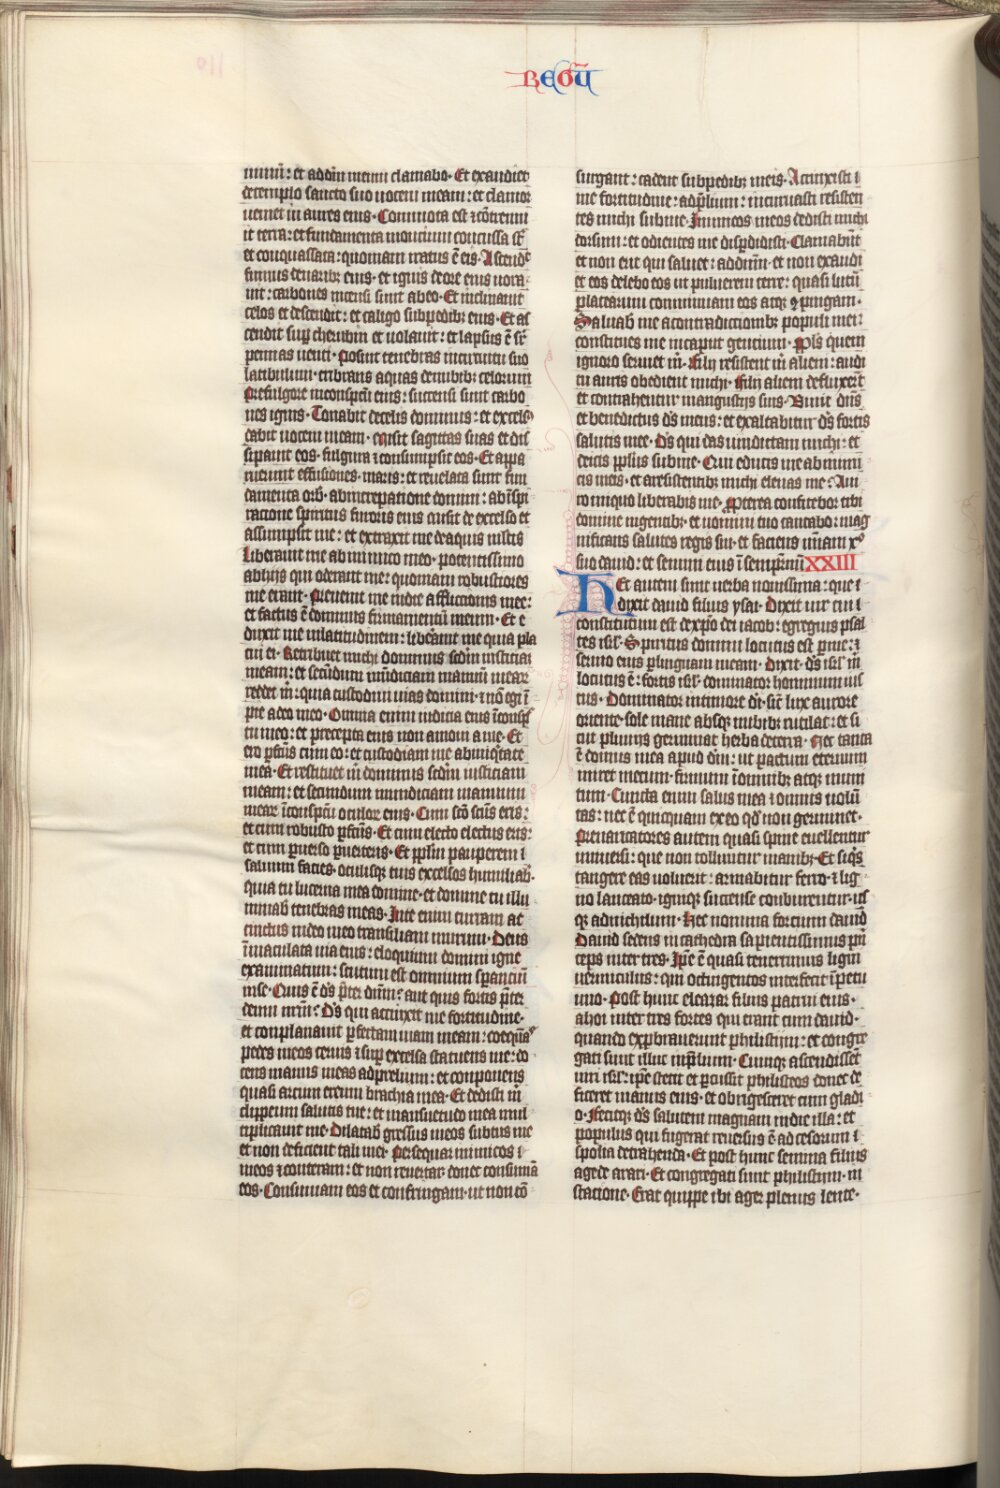 REGŪ
minū: et ad dm̄ meum clamabo. Et exaudiet
de templo sancto suo uocem meam: et clamor
ueniet in aures eius. Commota est ⁊ cōtremu
it terra: et fundamenta montium concussa st̄
et conquassata: quoniam iratus ē eis. Ascendit
fumus de naribꝫ eius. et ignis de ore eius uora
uit: carbones incensi sunt ab eo. Et inclinauit
celos et descendit: et caligo sub pedibꝫ eius. Et as
cendit suꝑ cherubin et uolauit: et lapsus ē sr̄
pennas uenti. Posuit tenebras in circuitu suo
latibulum: cribrans aquas de nubibꝫ celorum
Pre fulgore in conspcū eius: succensi sunt carbo
nes ignis. Tonabit de celis dominus: et excels9
dabit uocem meam. Misit sagittas suas et dis
sipauit eos. fulgura ⁊ consumpsit eos. Et appa
ruerunt effusiones maris: et reuelata sunt fun
damenta orb̄. ab increpatione domini: ab īspi
ratione spiritus furoris eius misit de excelso et
assumpsit me: et extraxit me de aquis multis
Liberauit me ab inimico meo. potentissimo
ab hijs qui oderant me: quoniam robustiores
me erant. Preuenit me in die afflictionis mee:
et factus ē dominus firmamentū meum. Et e
duxit me in latitudinem: liberauit me quia pla
cui ei. Retribuet michi dominus scdm iusticiā
meam: et secūdum mūdiciam manuū mear
reddet m̄: quia custodiui uias domini. ⁊ nō egi ī
pie a deo meo. Omnia enim iudicia eius ī conspc̄
tu meo: et precepta eius non amoui a me. Et
ero ꝑfcūs cum eo: et custodiam me ab iniq̄tate
mea. Et restituet m̄ dominus scdm iusticiam
meam: et secundum mundiciam manuum
mear ī conspcū oculor eius. Cum scō scūs eris:
et cum robusto ꝑfcūs. Et cum electo electus eris:
et cum ꝑuerso ꝑuerteris. Et ppl̄m pauperem
saluum facies. oculisqꝫ tuis excelsos humiliab.
quia tu lucerna mea domine. et domine tu illu
minab tenebras meas. In te enim curram ac
cinctus in deo meo transiliam murum. Deus
īmaculata uia eius: eloquium domini igne
examinatum: scutum est omnium sperantiū
in se. Quis ē ds̄ p̄ter dm̄: aut quis fortis p̄ter
deum nrm̄: Ds̄ qui accinxit me fortitudine.
et complanauit ꝑfectam uiam meam: coequās
pedes meos ceruis ⁊ suꝑ excelsa statuens me: do
cens manus meas ad prelium: et componens
quasi arcum ereum brachia mea. Et dedisti m̄
clypeum salutis tue: et mansuetudo mea mul
tiplicauit me. Dilatab gressus meos subtus me
et non deficient tali mei. Persequar inimicos
meos ⁊ conteram: et non reuertar donec consumā
eos. Consumam eos et confringam. ut non cō
surgant: cadent sub pedibꝫ meis. Accinxisti
me fortitudine: ad p̄lium: incuruasti resisten
tes michi sub me. Inimicos meos dedisti michi
dorsum: et odientes me disꝑdidisti. Clamabūt
et non erit qui saluet: ad dm̄m. et non exaudi
et eos delebo eos ut puluerem terre: quasi lutū
platearum comminuam eos atqꝫ ꝯpingam.
Saluab me a contradictionibꝫ populi mei:
constitues me in caput gentium. Pls̄ quem
ignoro seruiet m̄. Filij resistent m̄ alieni: audi
tu auris obedient michi. filij alieni defluxerūt
et contrahentur in angustijs suis. Viuit dn̄s
et benedictus ds̄ meus: et exaltabitur ds̄ fortis
salutis mee. Ds̄ qui das uindictam michi: et
deicis pp̄los sub me. Qui educis me ab inimi
cis meis. et a resistentibꝫ michi eleuas me: A ui
ro iniquo liberabis me. Propterea confitebor tibi
domine in gentibꝫ. et nomini tuo cantabo: mag
nificans salutes regis sui. et faciens mīam xp̄o
suo dauid: et semini eius ī sempit̄nū XXIII
Hec autem sunt uerba nouissima: que
dixit dauid filius ysai. Dixit uir cui
constitutum est de xpo dei iacob: egregius psal
tes isrl̄. Spiritus domini locutus est ꝑ me: ⁊
sermo eius ꝑ linguam meam. Dixit ds̄ isrl̄ m̄
locutus ē: fortis isrl̄. dominator hominum ius
tus. Dominator in timore di: sic̄ lux aurore
oriente sole mane absqꝫ nubibꝫ rutilat: et si
cut pluuijs germinat herba de terra. Nec tanta
ē domus mea apud dm̄: ut pactum eternum
iniret mecum. firmum ī omnibꝫ atqꝫ muni
tum. Cuncta enim salus mea ⁊ omnis uolū
tas: nec ē quicquam ex eo qd̄ non germinet.
Preuaricatores autem quasi spine euellentur
uniuersi: que non tolluntur manibꝫ. Et siqs̄
tangere eas uoluerit: armabitur ferro. ⁊ lig
no lanceato. igniqꝫ succense comburentur. us
qꝫ ad nichilum. Hec nomina fortium dauid
Dauid sedens in cathedra sapientissimus prī
ceps inter tres. Ipe ē quasi tenerrimus ligni
uermiculus: qui octingentos interfecit īpetu
uno. Post hunc eleazar filius patrui eius.
ahoi inter tres fortes qui erant cum dauid.
quando exprobrauerunt philistijm: et congre
gati sunt illuc in p̄lium. Cumqꝫ ascendissēt
uiri isrl̄: ipe stetit et ꝑcussit philisteos donec de
ficeret manus eius. et obrigesceret cum gladi
o. Fecitqꝫ ds̄ salutem magnam in die illa: et
populus qui fugerat reuersus ē ad cesorum
spolia detrahenda. Et post hunc semma filius
agede arari. Et congregati sunt philistijm. in
statione. Erat quippe ibi ager plenus lente.